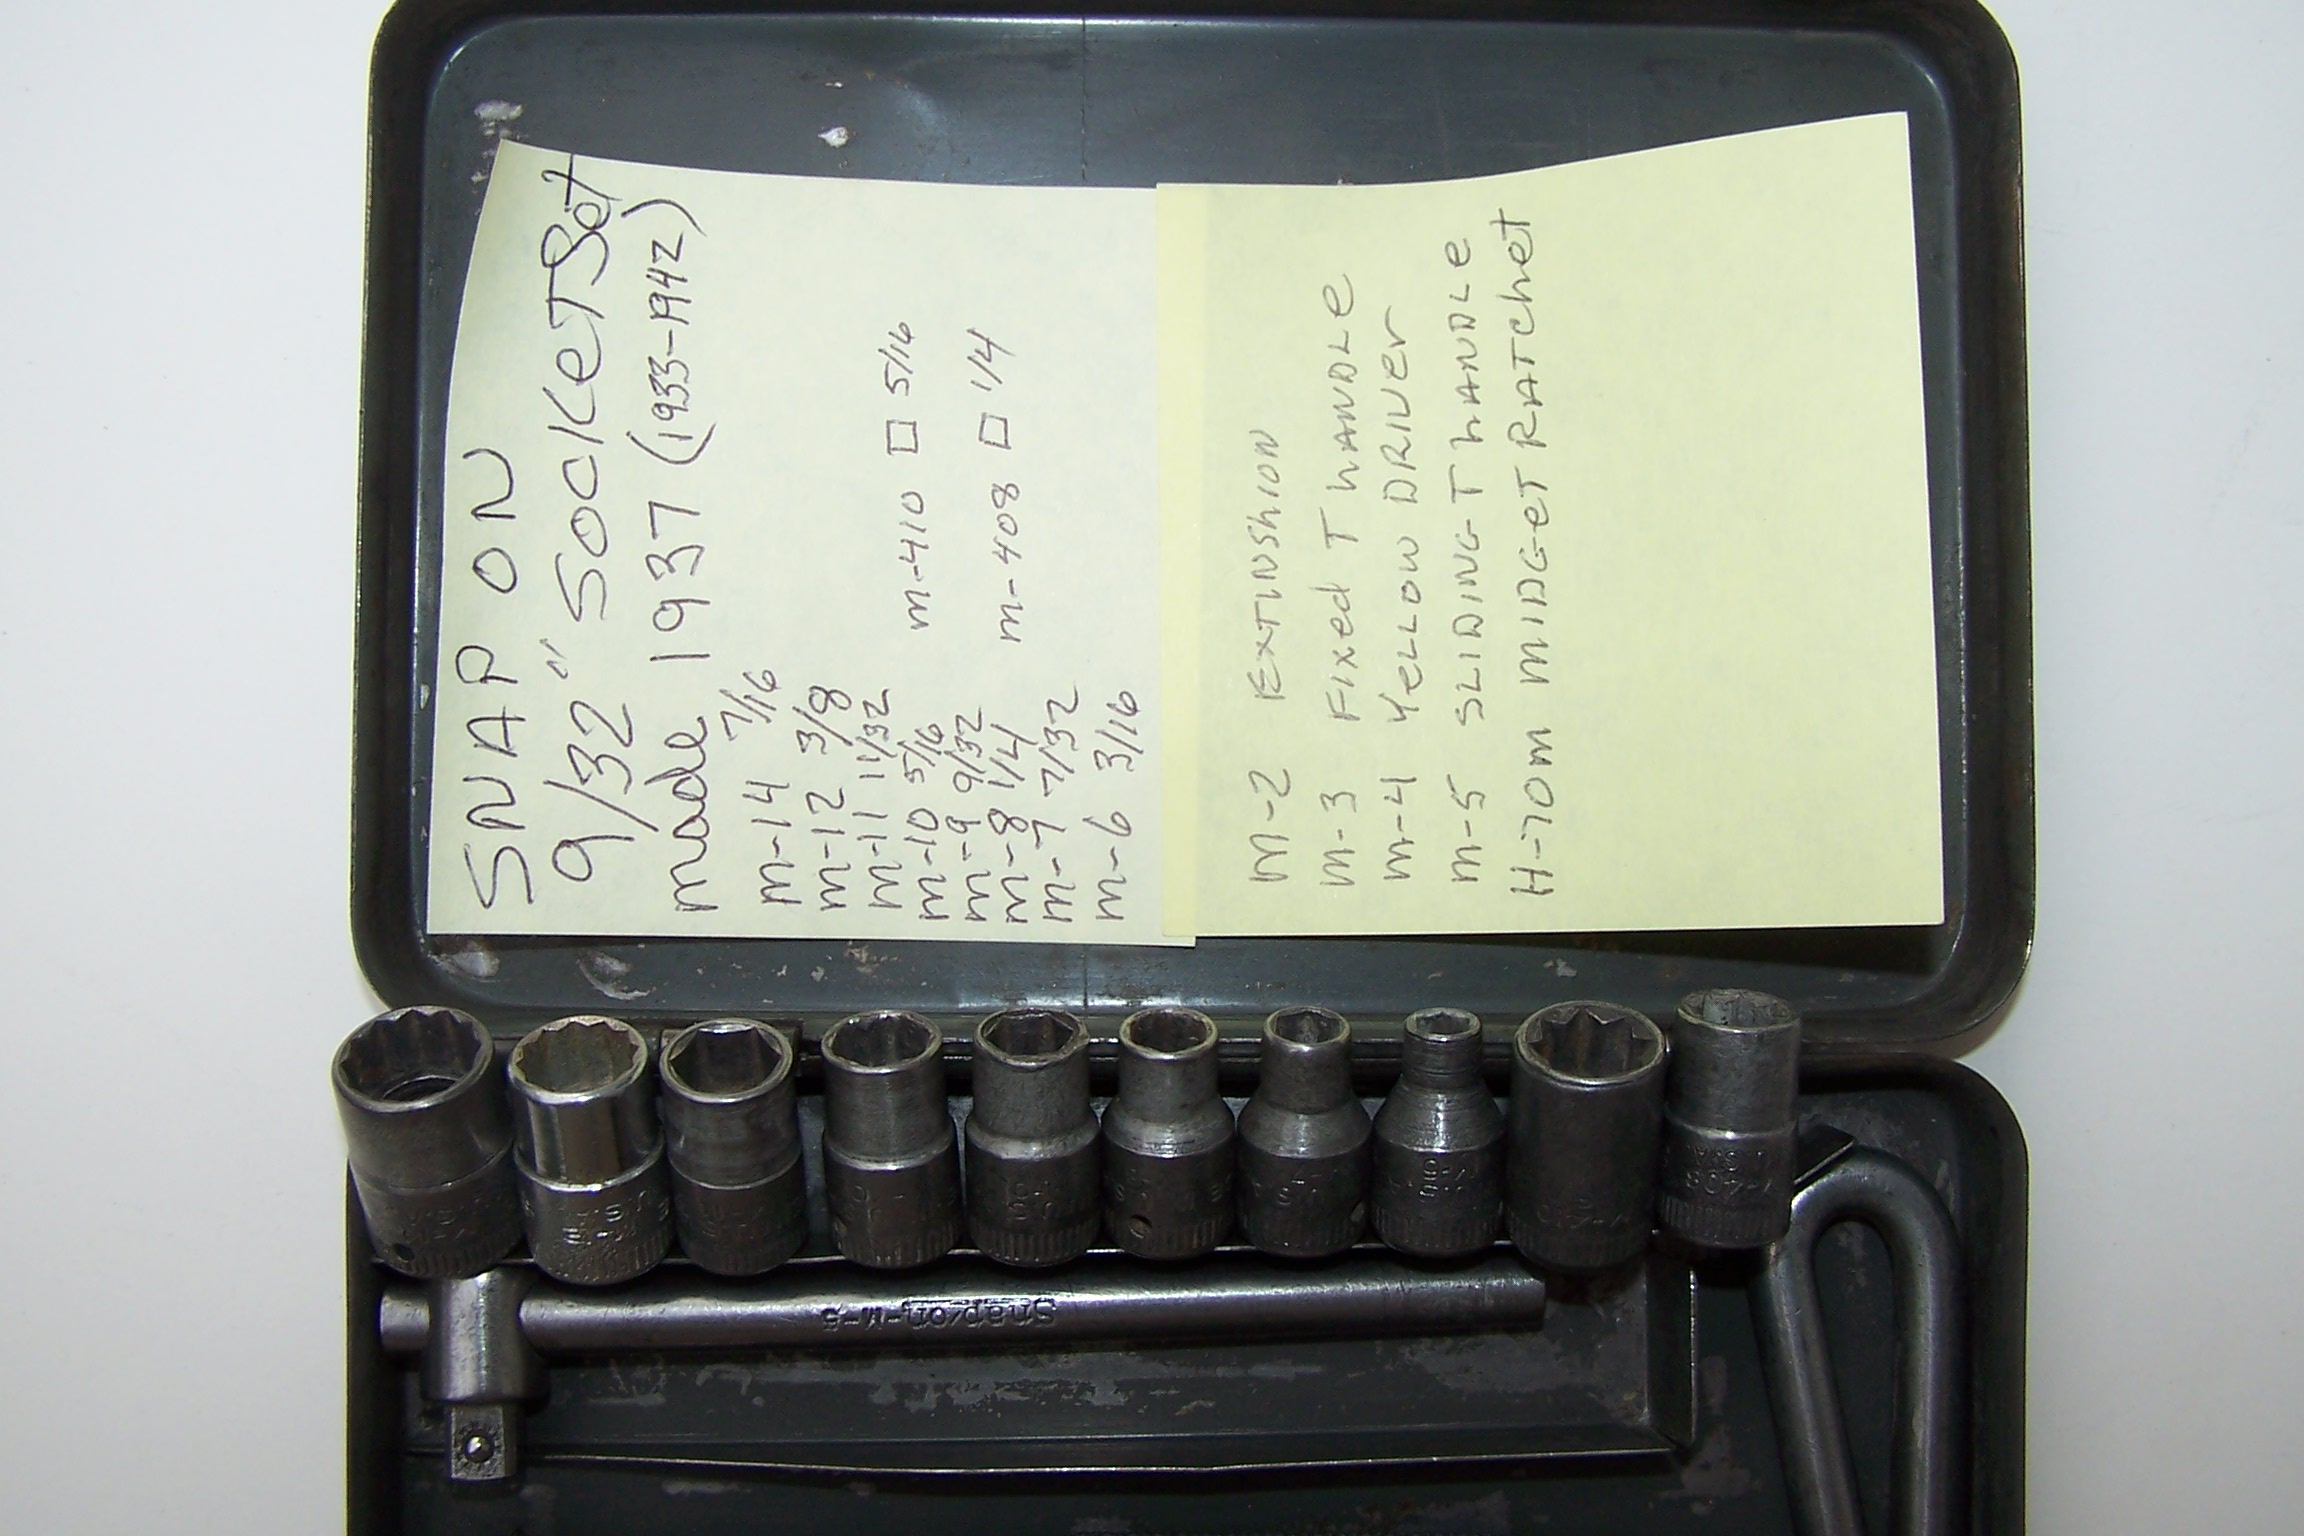 SNAP ON
9/32" SOCKET Set
made 1937 (1933-1942)
m-14 7/16
m-12 3/8
m-11 11/32
m-10 5/16
m-9 9/32
m-8 1/4
m-7 7/32
m-6 3/16
m-410 □ 5/16
m-408 □ 1/4
m-2 EXTINShION
m-3 FIXed T hANDLe
m-4 YeLLOW DRIVer
m-5 SLIDING T hANDLe
H-70m MIDGeT RATChet
Snap-on-M-5
M-408
U.S.A.